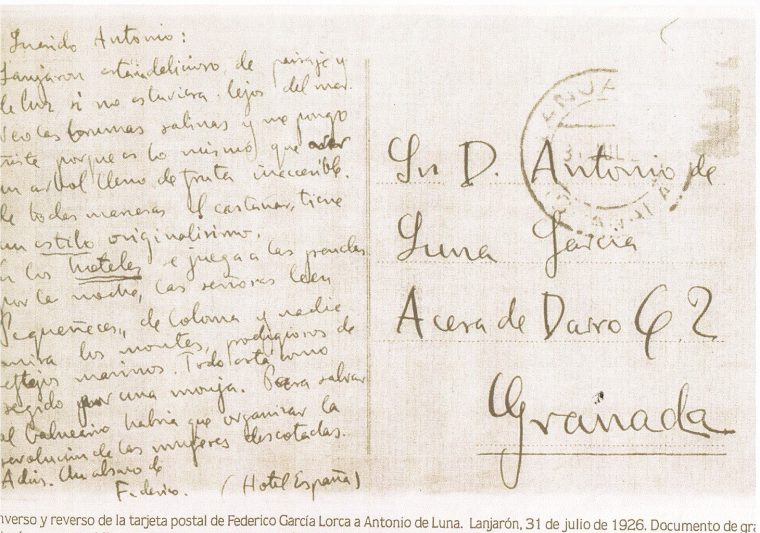 Querido Antonio:
Lanjaron estaria delicioso de paisaje y
de luz si no estuviera lejos del mar.
Veo las brumas salinas y me pongo
triste porque es lo mismo que ver
un arbol lleno de fruta inaccesible.
De todas maneras el castañar, tiene
un estilo originalisimo.
En los hoteles se juega a las prendas
por la noche, las señoras leen
Pequeñeces,, de Coloma y nadie
mira los montes, prodigiosos de
reflejos marinos. Todo está como
regido por una monja. Para salvar
al balneario habria que organizar la
revolucion de las mujeres descotadas.
Adios. Un abrazo de
Federico. (Hotel España)
LANJA
31 JUL
GRANADA
Sr D. Antonio de
Luna Garcia
Acera de Darro 62
Granada
nverso y reverso de la tarjeta postal de Federico García Lorca a Antonio de Luna. Lanjarón, 31 de julio de 1926. Documento de gra